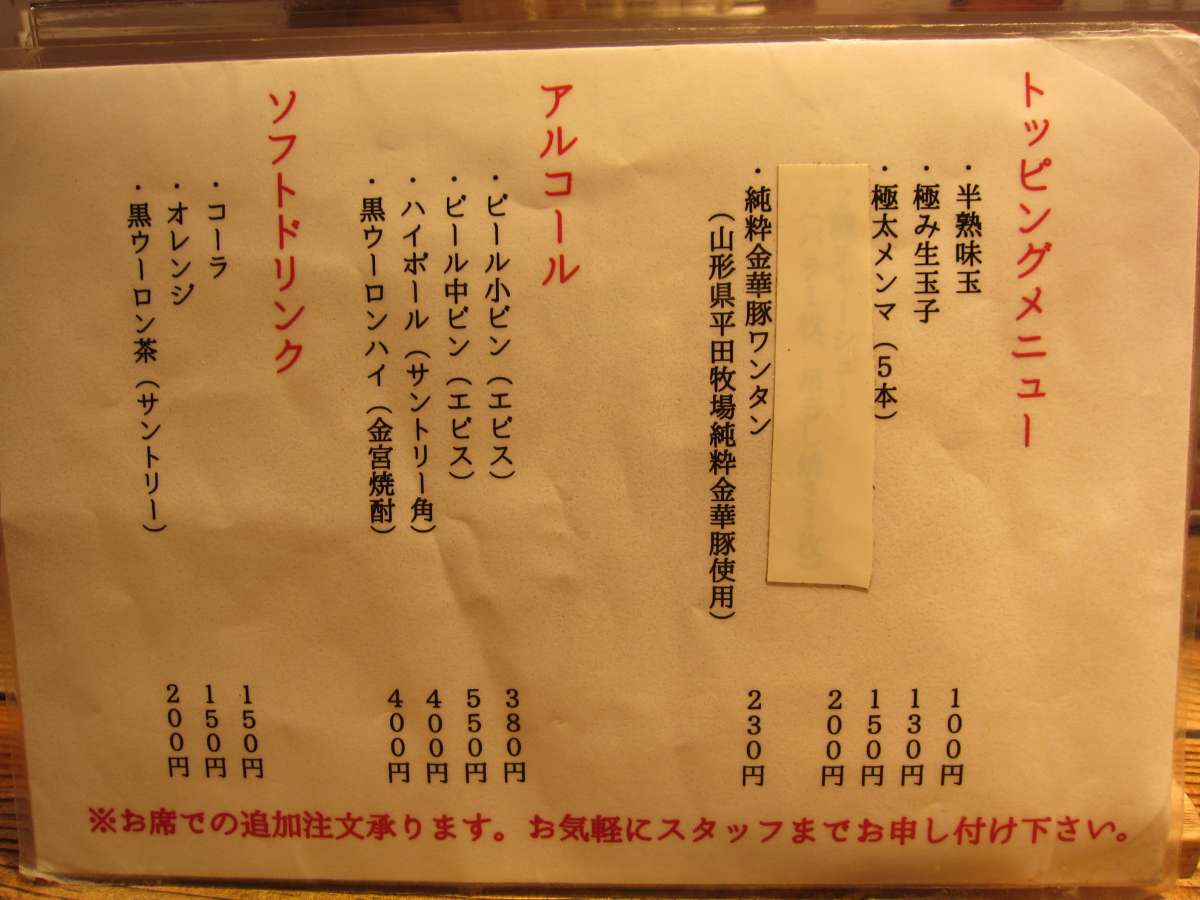 トッピングメニュー
・半熟味玉 100円
・極み生玉子 130円
・極太メンマ（5本） 150円
200円
・純粋金華豚ワンタン 230円
（山形県平田牧場純粋金華豚使用）
アルコール
・ビール小ビン（エビス） 380円
・ビール中ビン（エビス） 550円
・ハイボール（サントリー角） 400円
・黒ウーロンハイ（金宮焼酎） 400円
ソフトドリンク
・コーラ 150円
・オレンジ 150円
・黒ウーロン茶（サントリー） 200円
※お席での追加注文承ります。お気軽にスタッフまでお申し付け下さい。